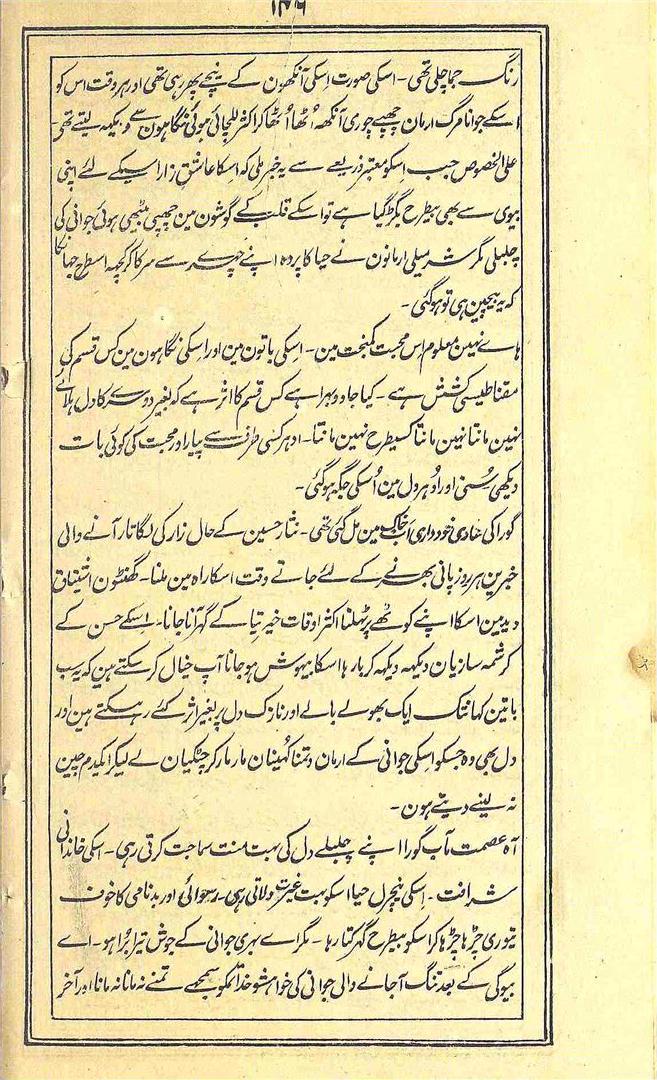 ۱۴۶
رنگ جما چلی تھی - اسکی صورت اسکی آنکھون کے نیچے پھر رہی تھی اور ہر وقت اس کو
اسکے جوانا مرگ ارمان چھپے چوری آنکھہ اُٹھا اُٹھا کر اکثر للچائی ہوئی نگاہون سے دیکھہ لیتے تھی
علی الخصوص جب اسکو معتبر ذریعے سے یہ خبر ملی کہ اسکا عاشق زار اسیکے لئے اپنی
بیوی سے بھی بیطرح بگڑ گیا ہے تو اسکے قلب کے گوشون مین چھپی بیٹھی ہوئی جوانی کی
چلبلی مگر شرمیلی ارمانون نے حیا کا پردہ اپنے چہرے سے سرکا کر کچہہ اسطرح جہانکا
کہ یہ بیچین ہی تو ہو گئی -
ہاے نہین معلوم اس محبت کمبخت مین - اسکی باتون مین اور اسکی نگاہون مین کس قسم کی
مقناطیسی کشش ہے - کیا جادو بہرا ہے کس قسم کا اثر ہے کہ بغیر دوسرے کا دل ہلائے
نہین مانتا نہین مانتا کسیطرح نہین مانتا - ادہر کسی طرف سے پیار اور محبت کی کوئی بات
دیکھی سُنی اور اُدہر دل مین اُسکی جگہ ہو گئی -
گورا کی خودداری اب خاک مین مل گئی تھی - نثار حسین کے حال زار کی لگاتار آنے والی
خبرین ہر روز پانی بھرنے کے لئے جاتے وقت اسکا راہ مین ملنا - گھنٹون اشتیاق
دید مین اسکا اپنے کوٹھے پر ٹہلنا اکثر اوقات خیر تیا کے گہر آنا جانا - اسکے حسن کے
کرشمہ سازیان دیکھہ دیکھہ کر بارہا اسکا بیہوش ہو جانا آپ خیال کر سکتے ہین کہ یہ سب
باتین کہانتک ایک بھولے بالے اور نازک دل پر بغیر اثر کئے رہ سکتے ہین اور
دل بھی وہ جسکو اسکی جوانی کے ارمان و تمنا کُہنیان مار مار کر چٹکیان لے لیکر ایکدم چین
نہ لینے دیتے ہون -
آہ عصمت مآب گورا اپنے چلبلے دل کی بہت منت سماجت کرتی رہی - اسکی خاندانی
شرافت - اسکی نیچرل حیا اسکو بہت غیرت دلاتی رہی - رسوائی اور بدنامی کا خوف
تیوری چڑہا چڑہا کر اسکو بیطرح گہرکتا رہا - مگر اے بہری جوانی کے جوش تیرا بُرا ہو - اے
بیوگی کے بعد تنگ آجانے والی جوانی کی خواہشو خدا تمکو سمجھے تمنے نہ مانا نہ مانا اور آخر